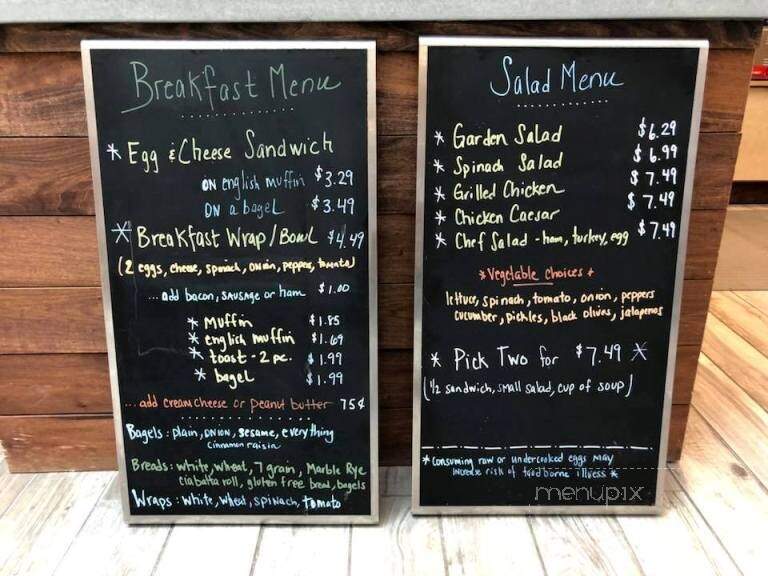 Breakfast Menu
* Egg & Cheese Sandwich
on english muffin $3.29
on a bagel $3.49
* Breakfast Wrap/Bowl $4.49
(2 eggs, cheese, spinach, onion, peppers, tomato)
...add bacon, sausage or ham $1.00
* Muffin $1.85
* english muffin $1.69
* toast - 2 pc. $1.99
* bagel $1.99
...add cream cheese or peanut butter 75¢
Bagels: plain, onion, sesame, everything
cinnamon raisin
Breads: white, wheat, 7 grain, Marble Rye
ciabatta roll, gluten free bread, bagels
Wraps: white, wheat, spinach, tomato
Salad Menu
* Garden Salad $6.29
* Spinach Salad $6.99
* Grilled Chicken $7.49
* Chicken Caesar $7.49
* Chef Salad - ham, turkey, egg $7.49
* Vegetable choices *
lettuce, spinach, tomato, onion, peppers
cucumber, pickles, black olives, jalapenos
* Pick Two for $7.49 *
(1/2 sandwich, small salad, cup of soup)
* Consuming raw or undercooked eggs may
increase risk of food borne illness *
menupix